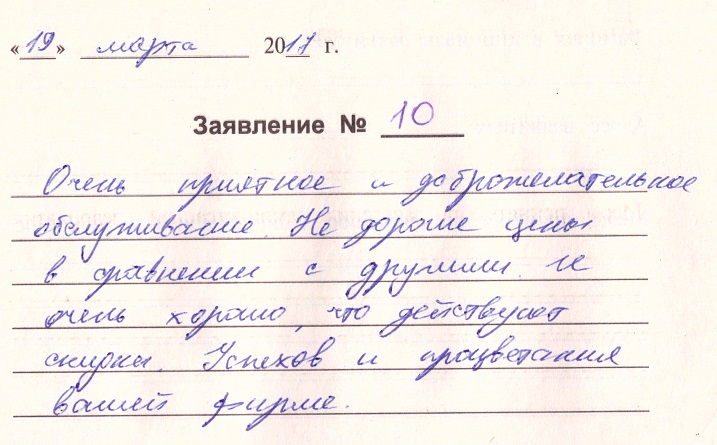 «19» марта 2017 г.
Заявление № 10
Очень приятное и доброжелательное
обслуживание. Не дорогие цены
в сравнении с другими. И
очень хорошо, что действуют
скидки. Успехов и процветания
вашей фирме.